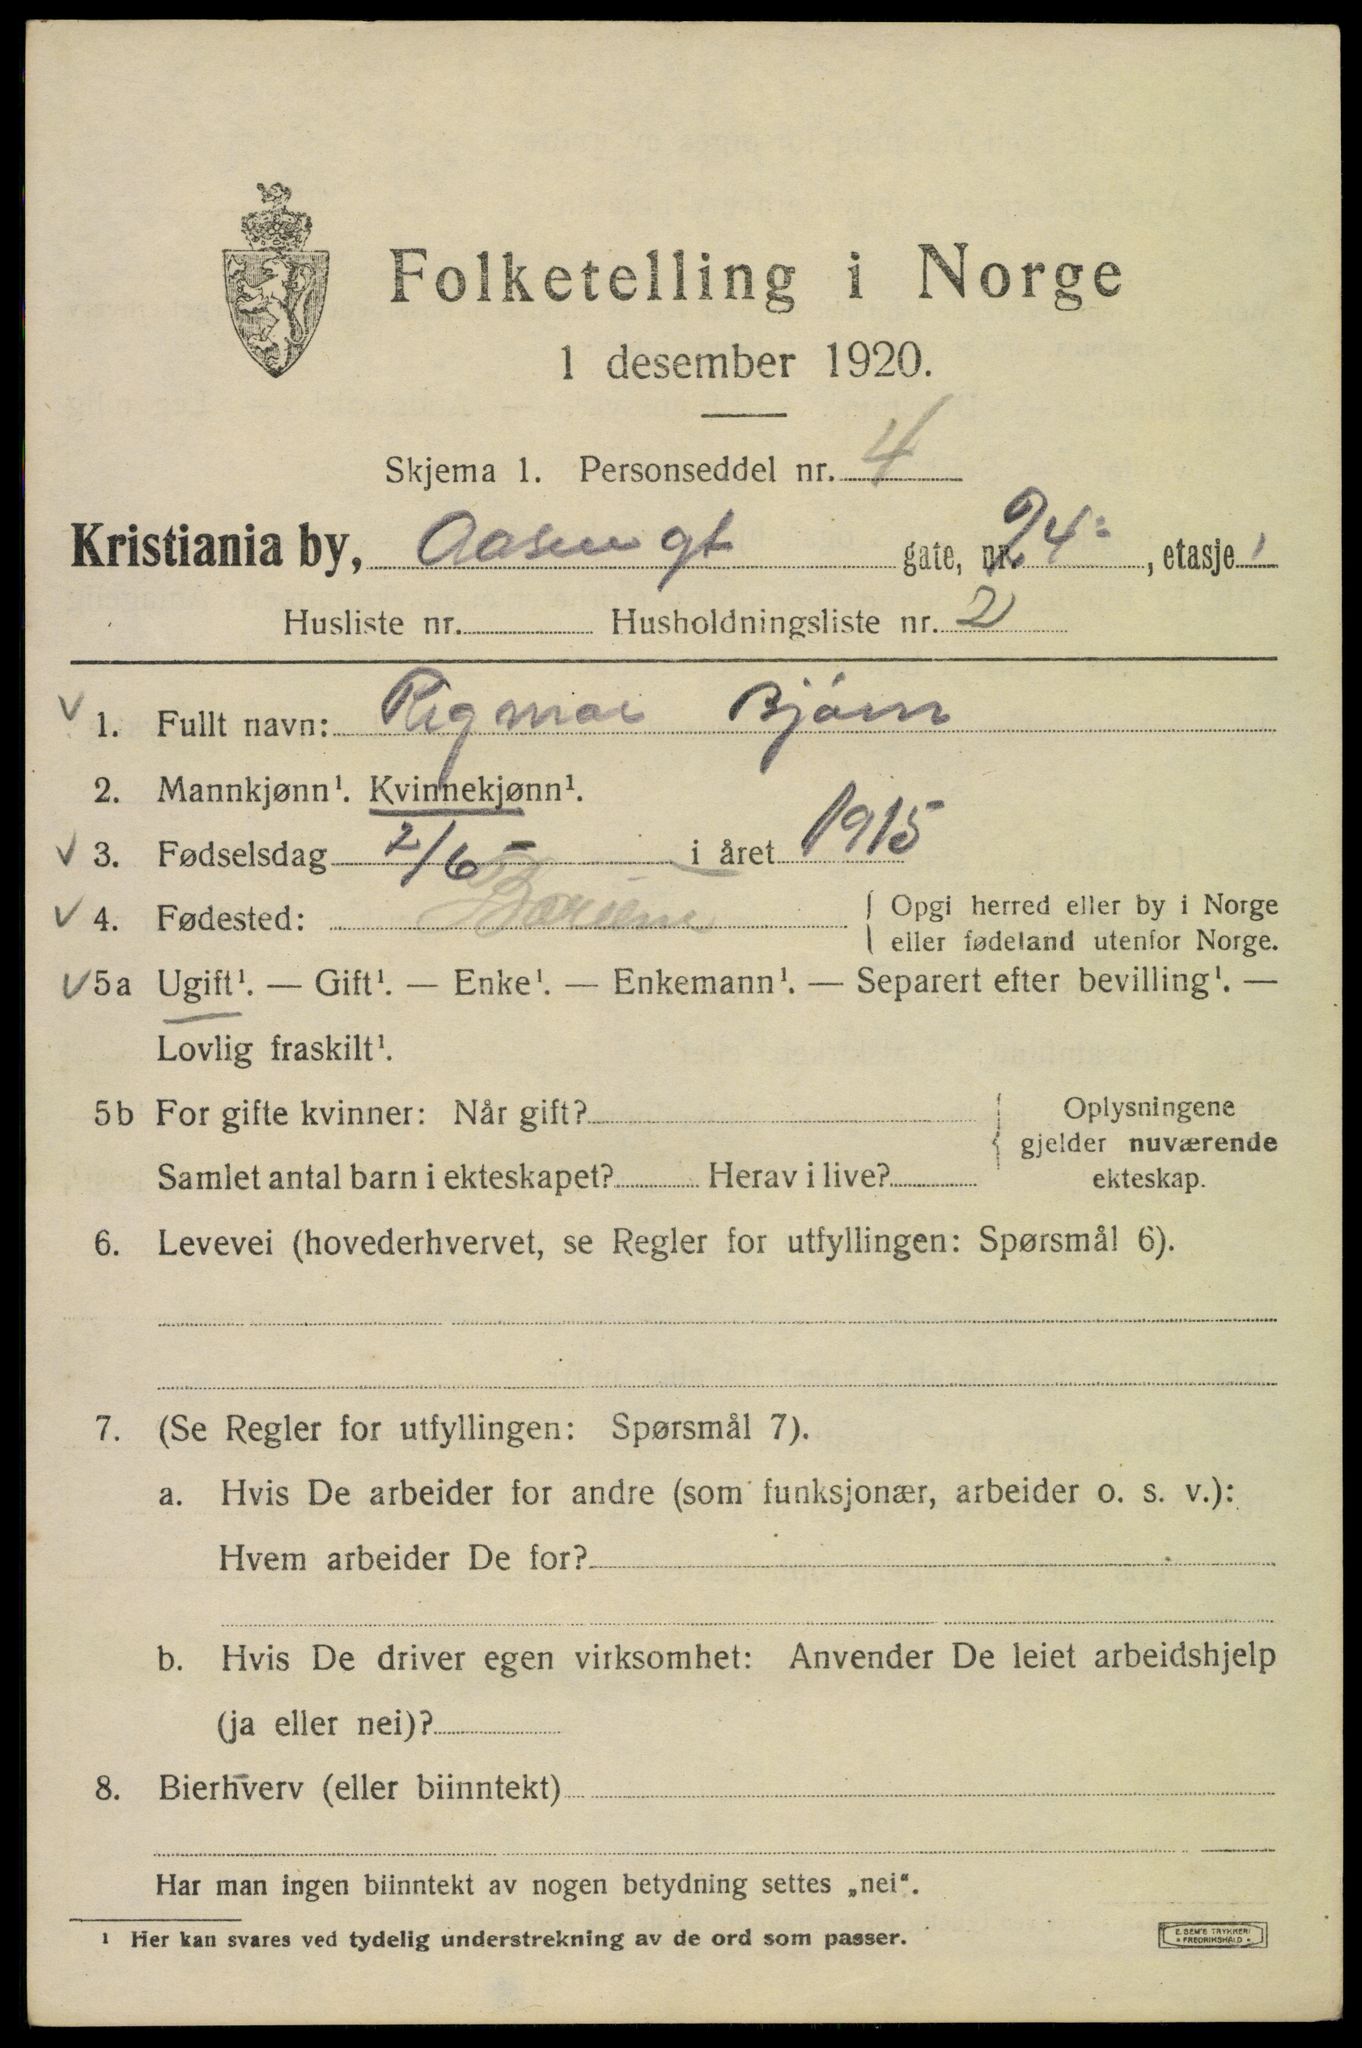 Folketelling i Norge
1 desember 1920.
Skjema 1. Personseddel nr. 4
Kristiania by, Aasengt gate, nr. 24 , etasje 1
Husliste nr. Husholdningsliste nr. 2
√ 1. Fullt navn: Rigmor Bjørn
2. Mannkjønn¹. Kvinnekjønn¹.
√ 3. Fødselsdag 2/6 i året 1915
√ 4. Fødested: Bærum { Opgi herred eller by i Norge
eller fødeland utenfor Norge.
√ 5a Ugift¹. — Gift¹. — Enke¹. — Enkemann¹. — Separert efter bevilling¹. —
Lovlig fraskilt¹.
5b For gifte kvinner: Når gift? { Oplysningene
gjelder nuværende
Samlet antal barn i ekteskapet? Herav i live? ekteskap.
6. Levevei (hovederhvervet, se Regler for utfyllingen: Spørsmål 6).
7. (Se Regler for utfyllingen: Spørsmål 7).
a. Hvis De arbeider for andre (som funksjonær, arbeider o. s. v.):
Hvem arbeider De for?
b. Hvis De driver egen virksomhet: Anvender De leiet arbeidshjelp
(ja eller nei)?
8. Bierhverv (eller biinntekt)
Har man ingen biinntekt av nogen betydning settes „nei“.
¹ Her kan svares ved tydelig understrekning av de ord som passer.
E. SEM'S TRYKKERI
• FREDRIKSHALD •